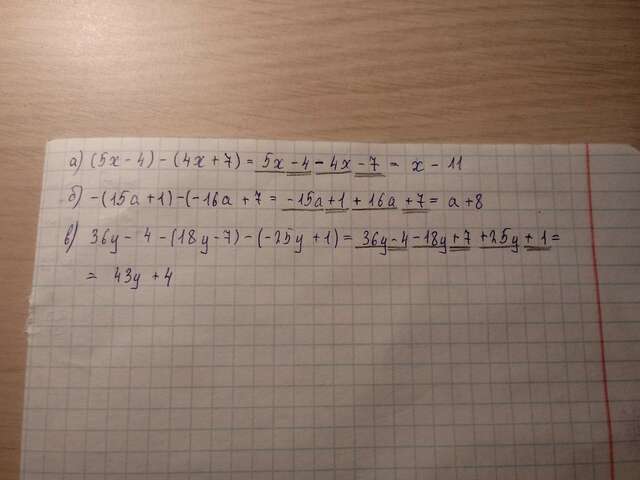 а) (5x - 4) - (4x + 7) = 5x - 4 - 4x - 7 = x - 11
б) -(15a + 1) - (-16a + 7 = -15a + 1 + 16a + 7 = a + 8
в) 36y - 4 - (18y - 7) - (-25y + 1) = 36y - 4 - 18y + 7 + 25y + 1 =
= 43y + 4